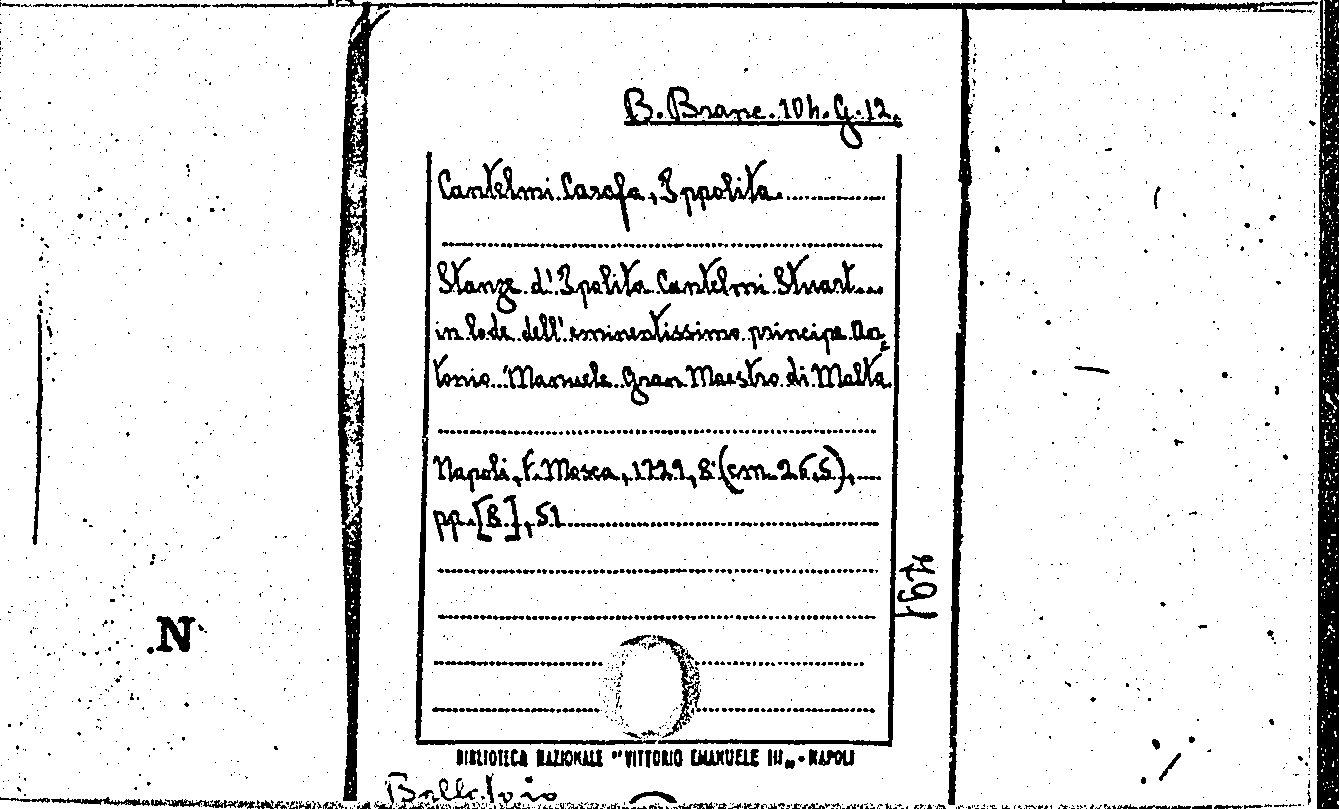 B. Branc. 10 h. G. 12.
Cantelmi Carafa, Ippolita
Stanze d'Ipolita Cantelmi Stuart...
in lode dell'eminentissimo principe An=
tonio Manuele Gran Maestro di Malta.
Napoli, F. Mosca, 1729, 8° (cm. 26,5),
pp. [8], 51
N
BIBLIOTECA NAZIONALE "VITTORIO EMANUELE III" - NAPOLI